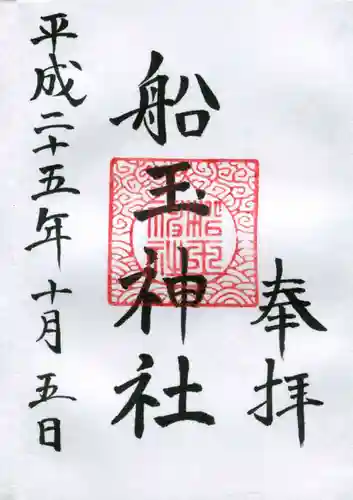 奉拝
船玉神社
平成二十五年十月五日